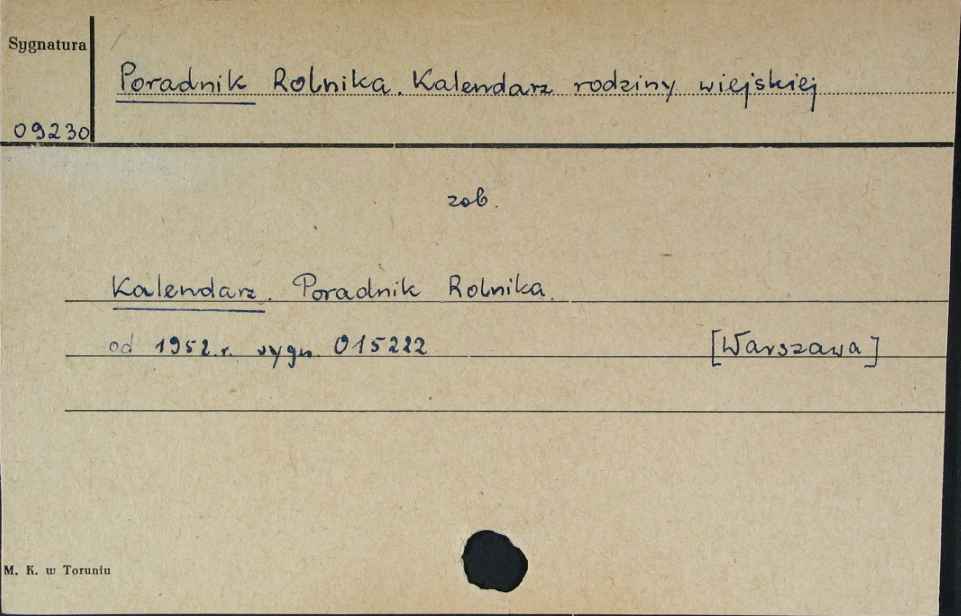 Sygnatura
Poradnik Rolnika. Kalendarz rodziny wiejskiej
09230
zob.
Kalendarz. Poradnik Rolnika.
od 1952.r. sygn. 015222 [Warszawa]
M. K. w Toruniu